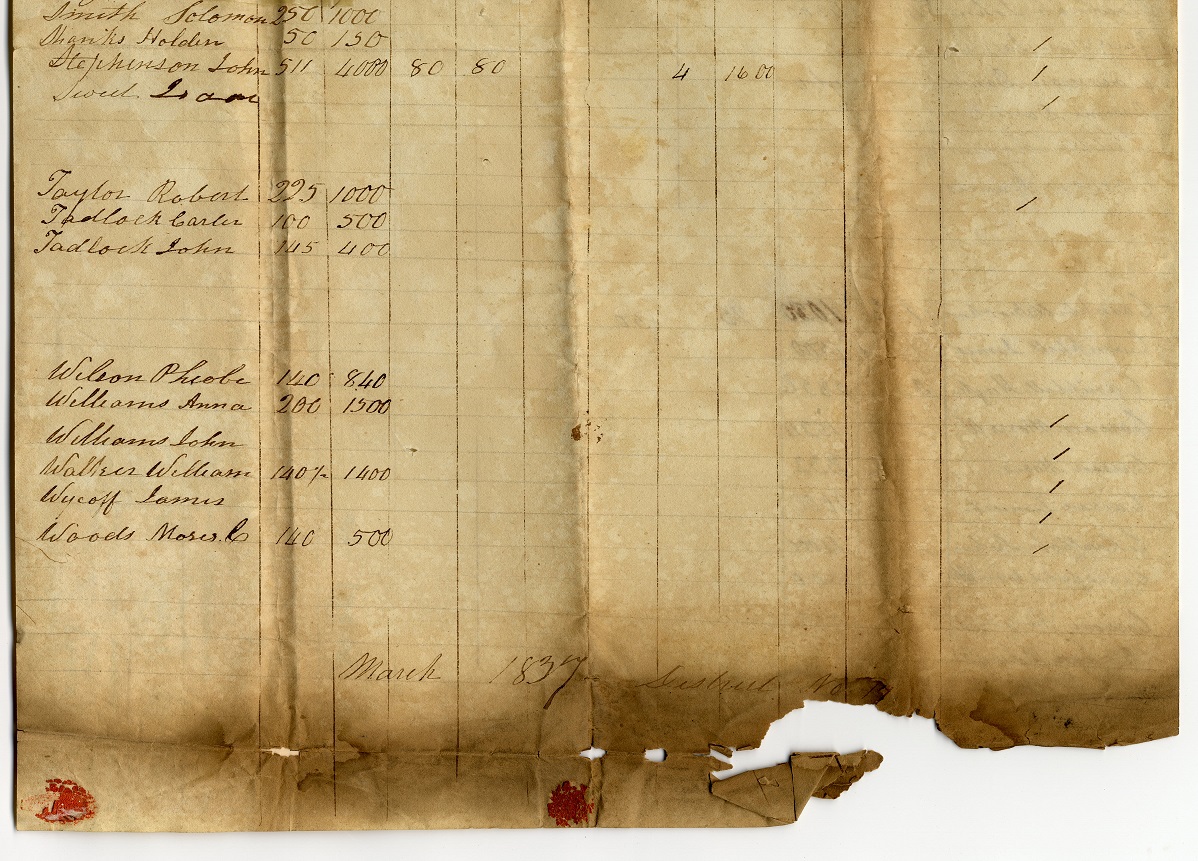 Smith Solomon 250 1000
Shanks Holden 50 150 /
Stephenson John 511 4000 80 80 4 1600 /
Sweet /
Taylor Robert 225 1000 /
Tadlock Carter 100 500
Tadlock John 145 400
Wilson Pheobe 140 840
Williams Anna 200 1500 /
Williams John /
Walker William 140 1400 /
Wycoff James /
Woods Moses C 140 500 /
March 1837 District No